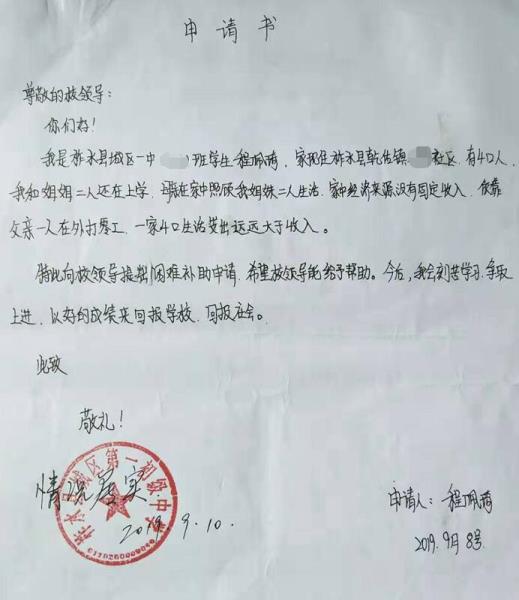 申请书
尊敬的校领导：
你们好！
我是柞水县城区一中 班学生程佩琦，家现住柞水县乾佑镇 社区，有4口人，
我和姐姐二人还在上学，母亲在家中照顾我姐妹二人生活，家中经济来源没有固定收入，仅靠
父亲一人在外打零工，一家4口生活支出远远大于收入。
特此向校领导提出困难补助申请，希望校领导能给予帮助。今后，我会刻苦学习，争取
上进，以好的成绩来回报学校，回报社会。
此致
敬礼！
柞水县城区第一初级中学
情况属实
2019.9.10.
申请人：程佩琦
2019.9月8号